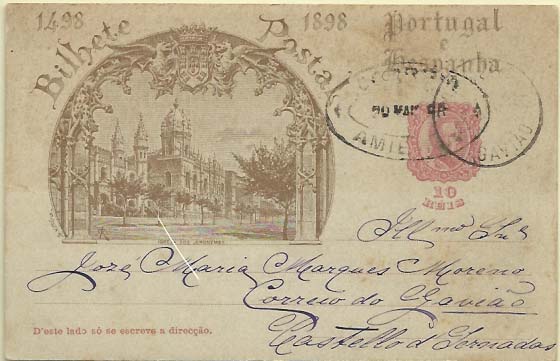 1498 1898
Bilhete Postal
Portugal
e
Hespanha
GAVIÃO
10
REIS
Ill.mo Snr
José Maria Marques Moreno
Correio do Gavião
Castello d'Sernadas
D'este lado só se escreve a direcção.